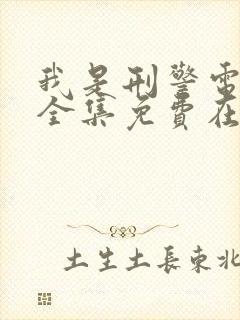 我是刑警電
全集免費在
土生土長東北